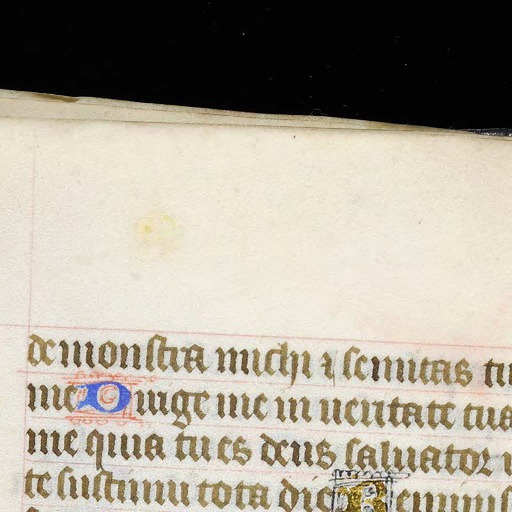 demonstra michi ⁊ semitas tu
me Dirige me in ueritate tua
me quia tu es deus saluator
te sustinui tota die Reminis